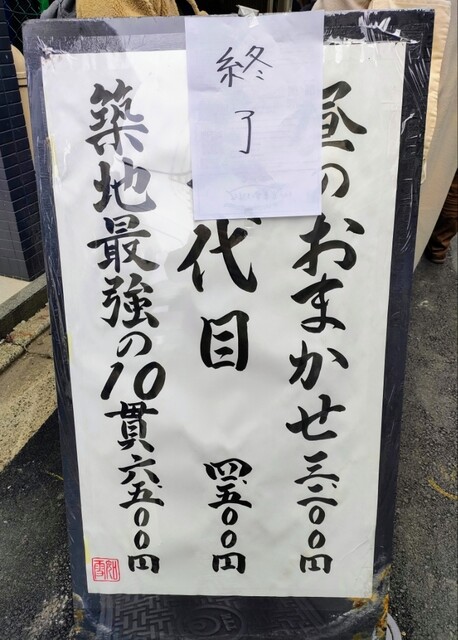 終
了
昼のおまかせ 三、二〇〇円
代目 四、五〇〇円
築地最強の10貫 六五〇〇円